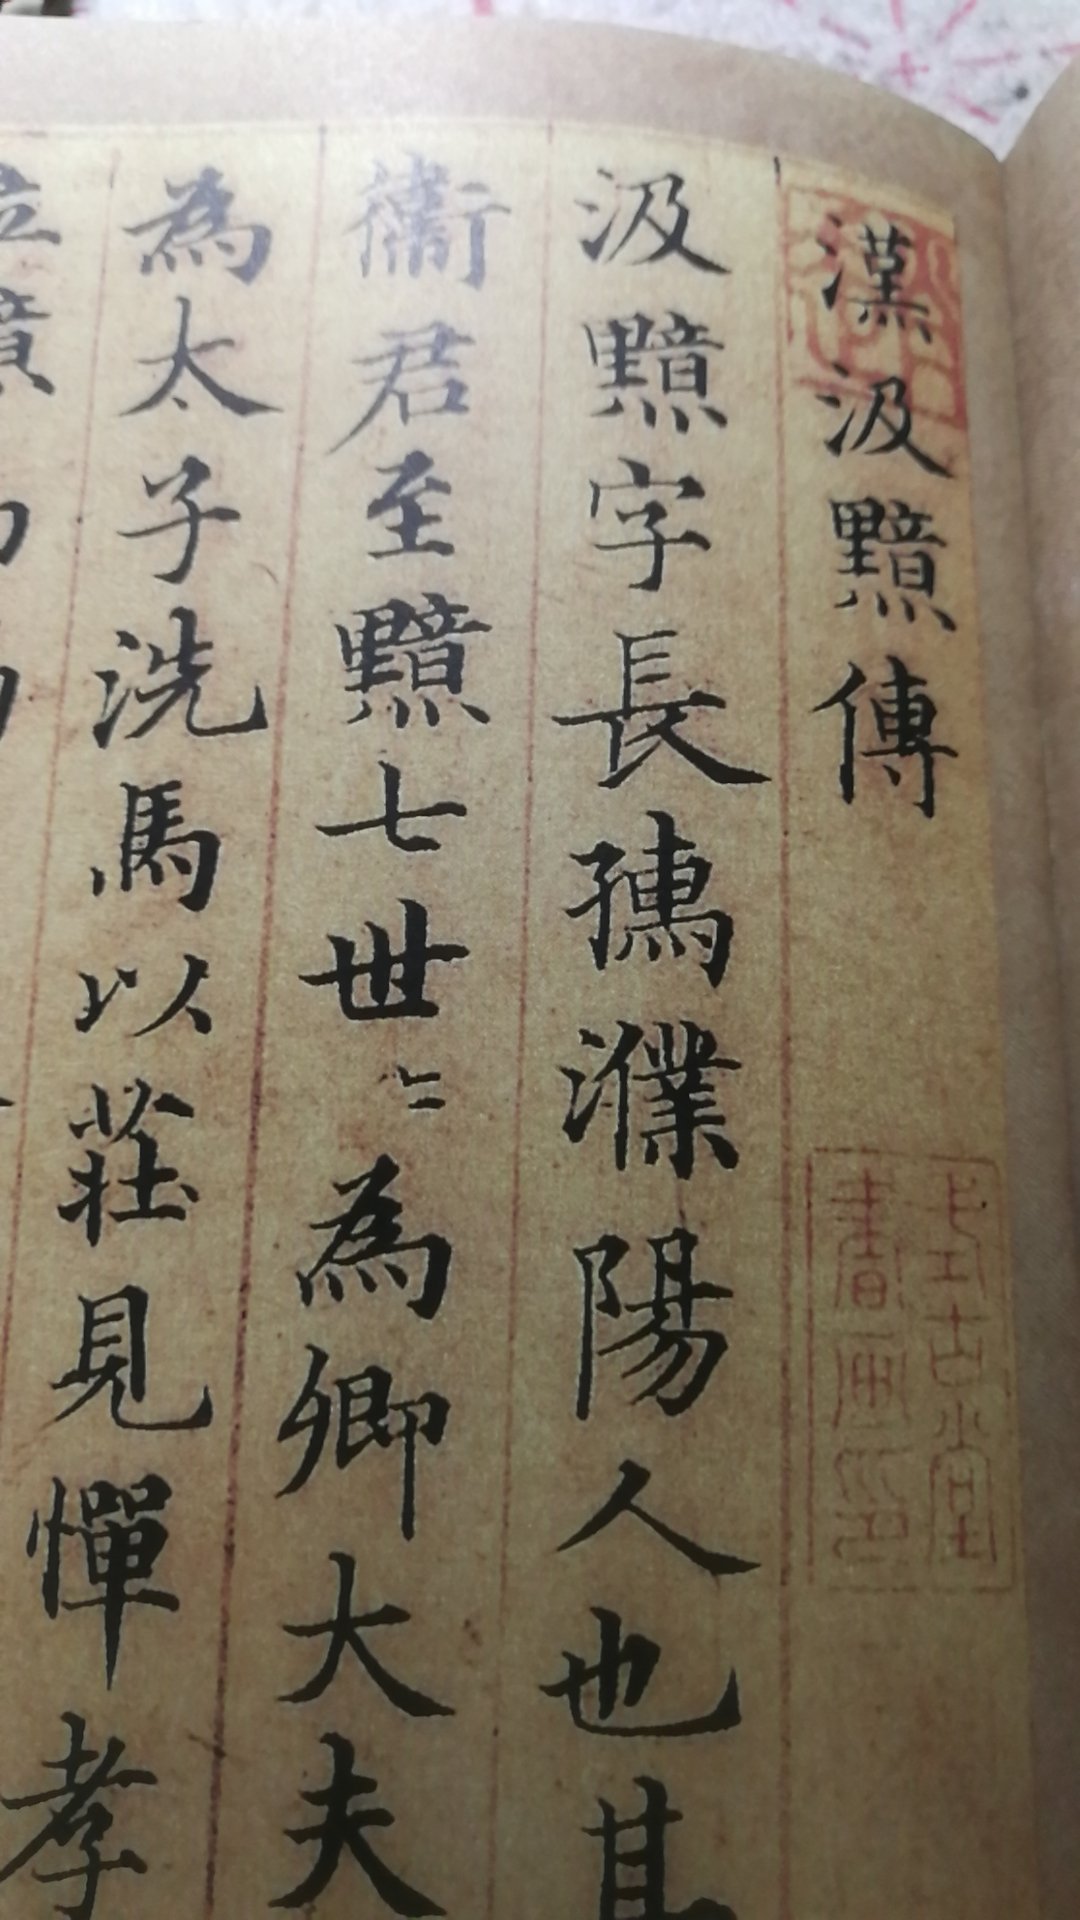 漢汲黯傳
式古堂
書畫印
汲黯字長孺濮陽人也其
衛君至黯七世〻為卿大夫
為太子洗馬以莊見憚孝